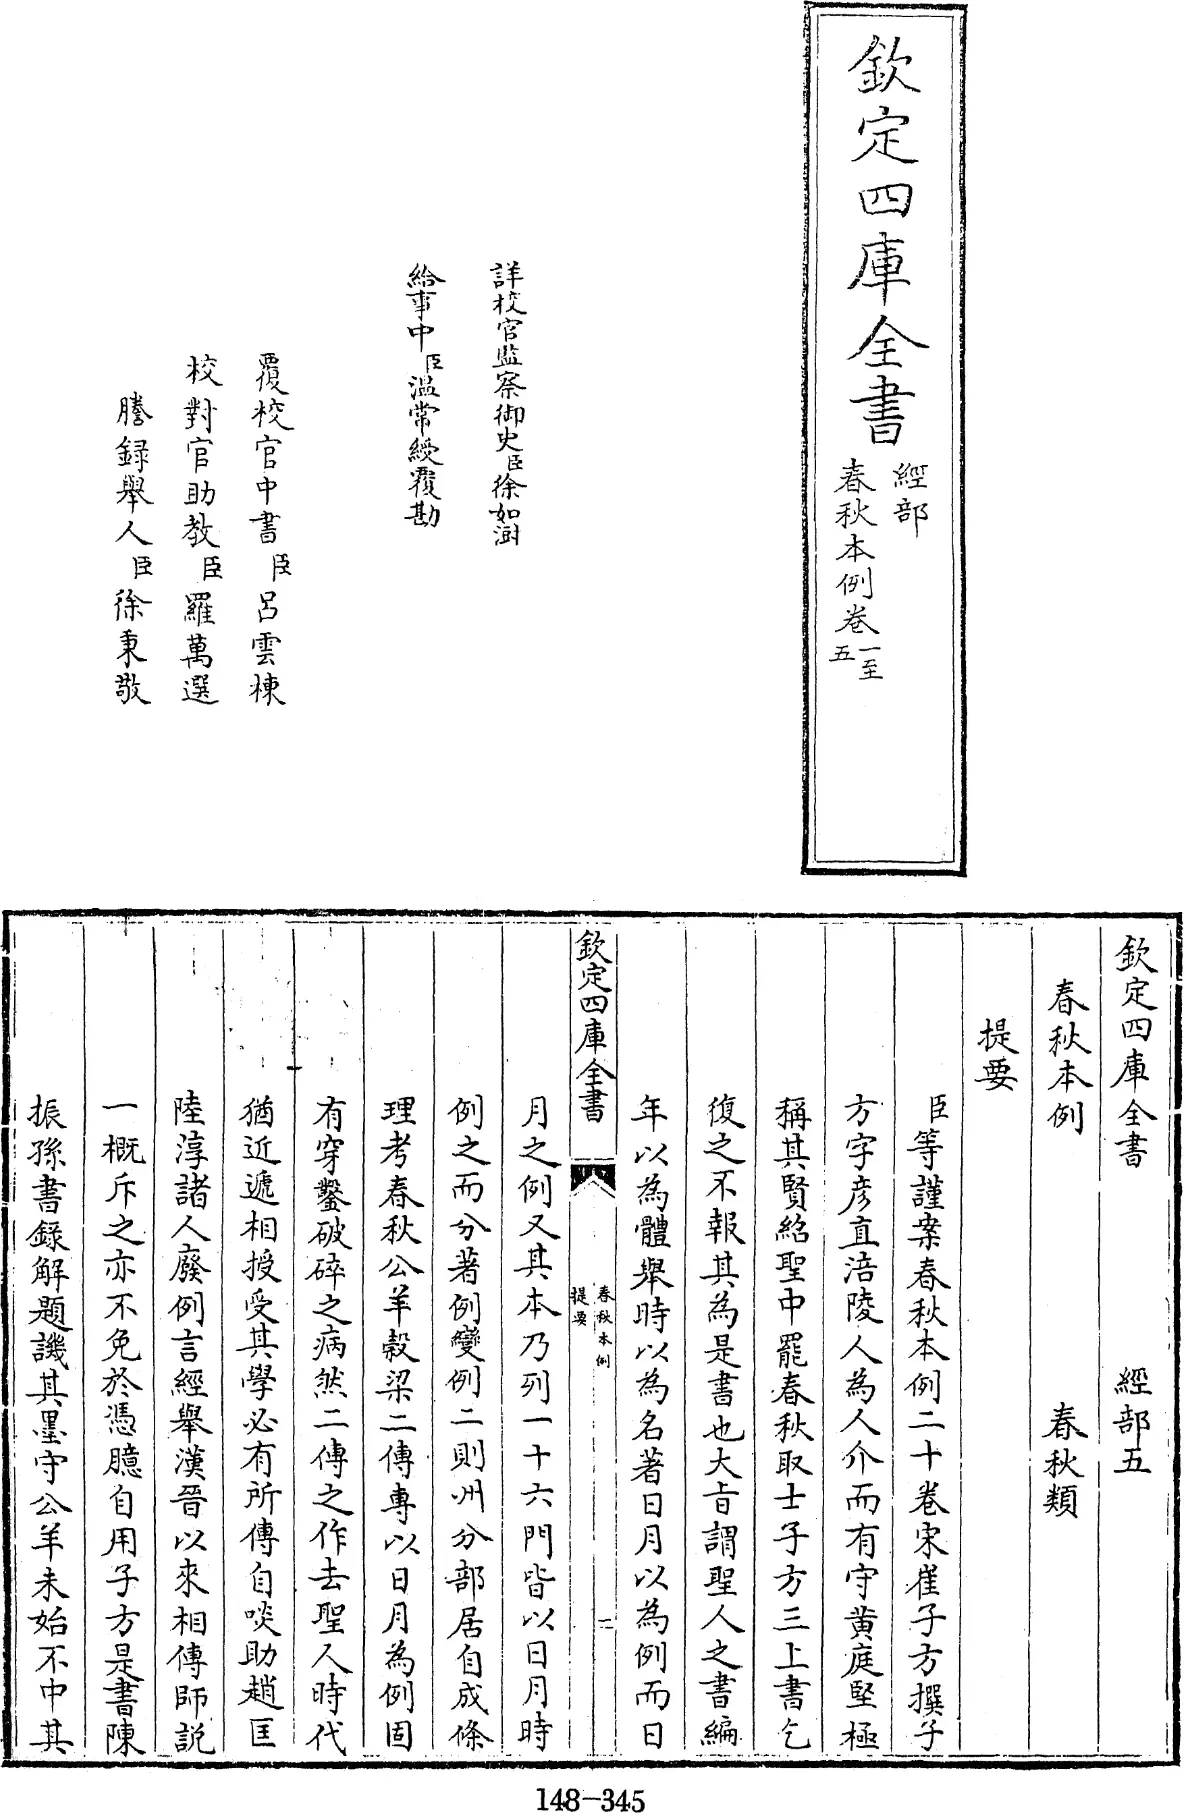 欽定四庫全書
經部
春秋本例卷一至五
詳校官監察御史臣徐如澍
給事中臣溫常綬覆勘
覆校官中書臣呂雲棟
校對官助教臣羅萬選
謄錄舉人臣徐秉敬
欽定四庫全書 經部五
春秋本例 春秋類
提要
臣等謹案春秋本例二十卷宋崔子方撰子
方字彥直涪陵人為人介而有守黃庭堅極
稱其賢紹聖中罷春秋取士子方三上書乞
復之不報其為是書也大旨謂聖人之書編
年以為體舉時以為名著日月以為例而日
欽定四庫全書
春秋本例
提要
二
月之例又其本乃列一十六門皆以日月時
例之而分著例變例二則州分部居自成條
理考春秋公羊穀梁二傳專以日月為例固
有穿鑿破碎之病然二傳之作去聖人時代
猶近遞相授受其學必有所傳自啖助趙匡
陸淳諸人廢例言經舉漢晉以來相傳師說
一概斥之亦不免於憑臆自用子方是書陳
振孫書錄解題譏其墨守公羊未始不中其
148-345